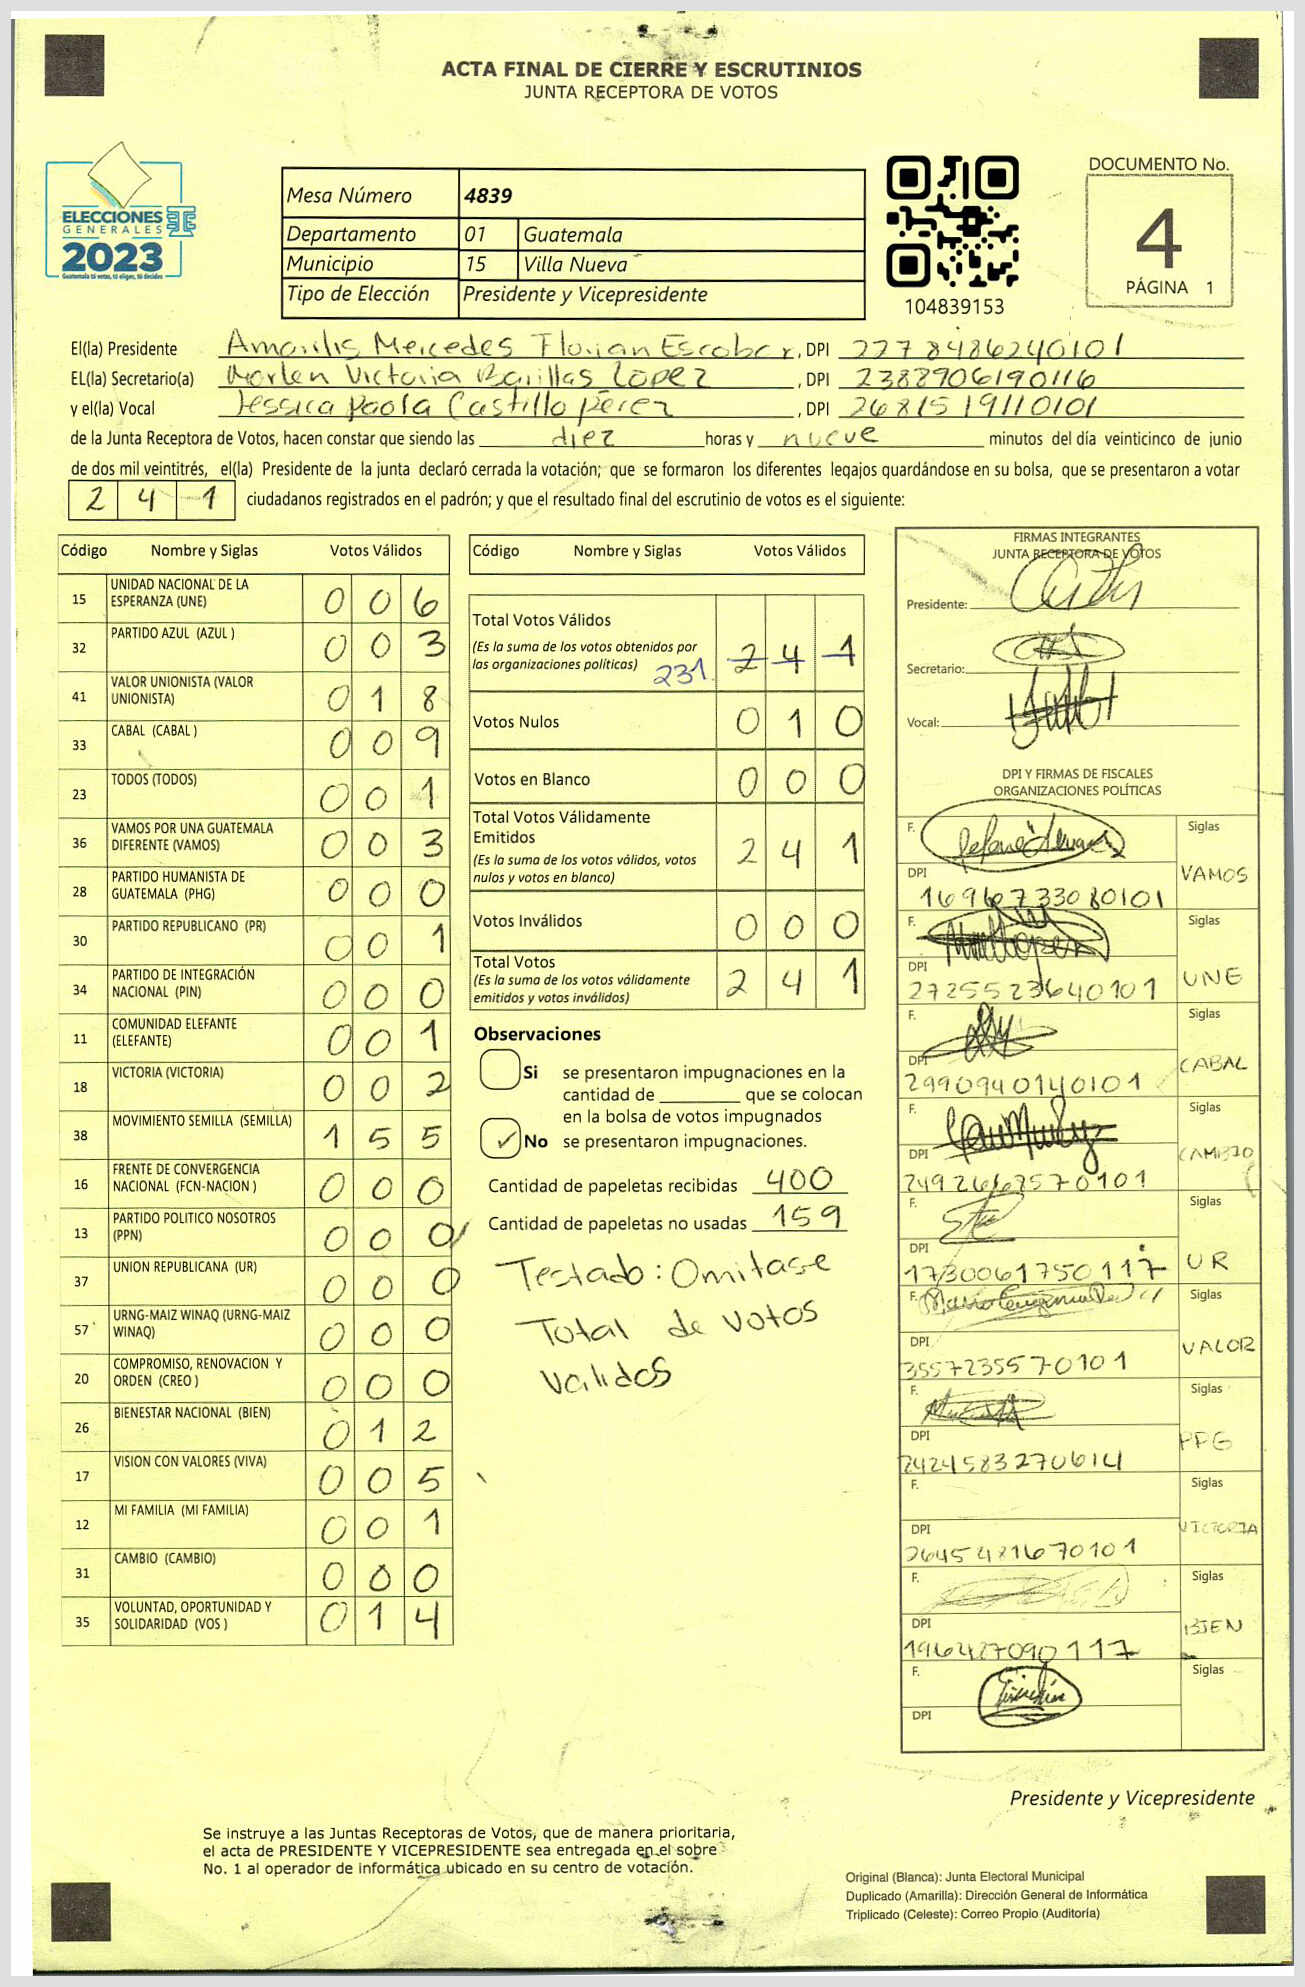 ACTA FINAL DE CIERRE Y ESCRUTINIOS
JUNTA RECEPTORA DE VOTOS
ELECCIONES
GENERALES
2023
Guatemala tú votas, tú eliges, tú decides
Mesa Número 4839
Departamento 01 Guatemala
Municipio 15 Villa Nueva
Tipo de Elección Presidente y Vicepresidente
104839153
DOCUMENTO No.
4
PÁGINA 1
El(la) Presidente Amarilis Mercedes Florian Escobar, DPI 2278486240101
EL(la) Secretario(a) Marlen Victoria Barillas Lopez, DPI 2382906190116
y el(la) Vocal Jessica Paola Castillo Pérez, DPI 2681519110101
de la Junta Receptora de Votos, hacen constar que siendo las diez horas y nueve minutos del día veinticinco de junio
de dos mil veintitrés, el(la) Presidente de la junta declaró cerrada la votación; que se formaron los diferentes legajos guardándose en su bolsa, que se presentaron a votar
2 4 1 ciudadanos registrados en el padrón; y que el resultado final del escrutinio de votos es el siguiente:
Código Nombre y Siglas Votos Válidos
15 UNIDAD NACIONAL DE LA ESPERANZA (UNE) 0 0 6
32 PARTIDO AZUL (AZUL ) 0 0 3
41 VALOR UNIONISTA (VALOR UNIONISTA) 0 1 8
33 CABAL (CABAL ) 0 0 9
23 TODOS (TODOS) 0 0 1
36 VAMOS POR UNA GUATEMALA DIFERENTE (VAMOS) 0 0 3
28 PARTIDO HUMANISTA DE GUATEMALA (PHG) 0 0 0
30 PARTIDO REPUBLICANO (PR) 0 0 1
34 PARTIDO DE INTEGRACIÓN NACIONAL (PIN) 0 0 0
11 COMUNIDAD ELEFANTE (ELEFANTE) 0 0 1
18 VICTORIA (VICTORIA) 0 0 2
38 MOVIMIENTO SEMILLA (SEMILLA) 1 5 5
16 FRENTE DE CONVERGENCIA NACIONAL (FCN-NACION ) 0 0 0
13 PARTIDO POLITICO NOSOTROS (PPN) 0 0 0
37 UNION REPUBLICANA (UR) 0 0 0
57 URNG-MAIZ WINAQ (URNG-MAIZ WINAQ) 0 0 0
20 COMPROMISO, RENOVACION Y ORDEN (CREO ) 0 0 0
26 BIENESTAR NACIONAL (BIEN) 0 1 2
17 VISION CON VALORES (VIVA) 0 0 5
12 MI FAMILIA (MI FAMILIA) 0 0 1
31 CAMBIO (CAMBIO) 0 0 0
35 VOLUNTAD, OPORTUNIDAD Y SOLIDARIDAD (VOS ) 0 1 4
Código Nombre y Siglas Votos Válidos
Total Votos Válidos
(Es la suma de los votos obtenidos por
las organizaciones políticas) 231. 2 4 1
Votos Nulos 0 1 0
Votos en Blanco 0 0 0
Total Votos Válidamente
Emitidos
(Es la suma de los votos válidos, votos
nulos y votos en blanco) 2 4 1
Votos Inválidos 0 0 0
Total Votos
(Es la suma de los votos válidamente
emitidos y votos inválidos) 2 4 1
Observaciones
Si se presentaron impugnaciones en la
cantidad de ________ que se colocan
en la bolsa de votos impugnados
✓ No se presentaron impugnaciones.
Cantidad de papeletas recibidas 400
Cantidad de papeletas no usadas 159
Testado: Omitase
Total de votos
validos
FIRMAS INTEGRANTES
JUNTA RECEPTORA DE VOTOS
Presidente:
Secretario:
Vocal:
DPI Y FIRMAS DE FISCALES
ORGANIZACIONES POLÍTICAS
F. Siglas
DPI VAMOS
1696733080101
F. Siglas
DPI UNE
2725523640101
F. Siglas
DPI CABAL
2990940140101
F. Siglas
DPI CAMBIO
2492666257 0101
F. Siglas
DPI UR
1730061750117
F. Siglas
DPI VALOR
3557235570101
F. Siglas
DPI PPG
2424583270614
F. Siglas
DPI VICTORIA
2645481670101
F. Siglas
DPI BIEN
196427090117
F. Siglas
DPI
Presidente y Vicepresidente
Se instruye a las Juntas Receptoras de Votos, que de manera prioritaria,
el acta de PRESIDENTE Y VICEPRESIDENTE sea entregada en el sobre
No. 1 al operador de informática ubicado en su centro de votación.
Original (Blanca): Junta Electoral Municipal
Duplicado (Amarilla): Dirección General de Informática
Triplicado (Celeste): Correo Propio (Auditoría)